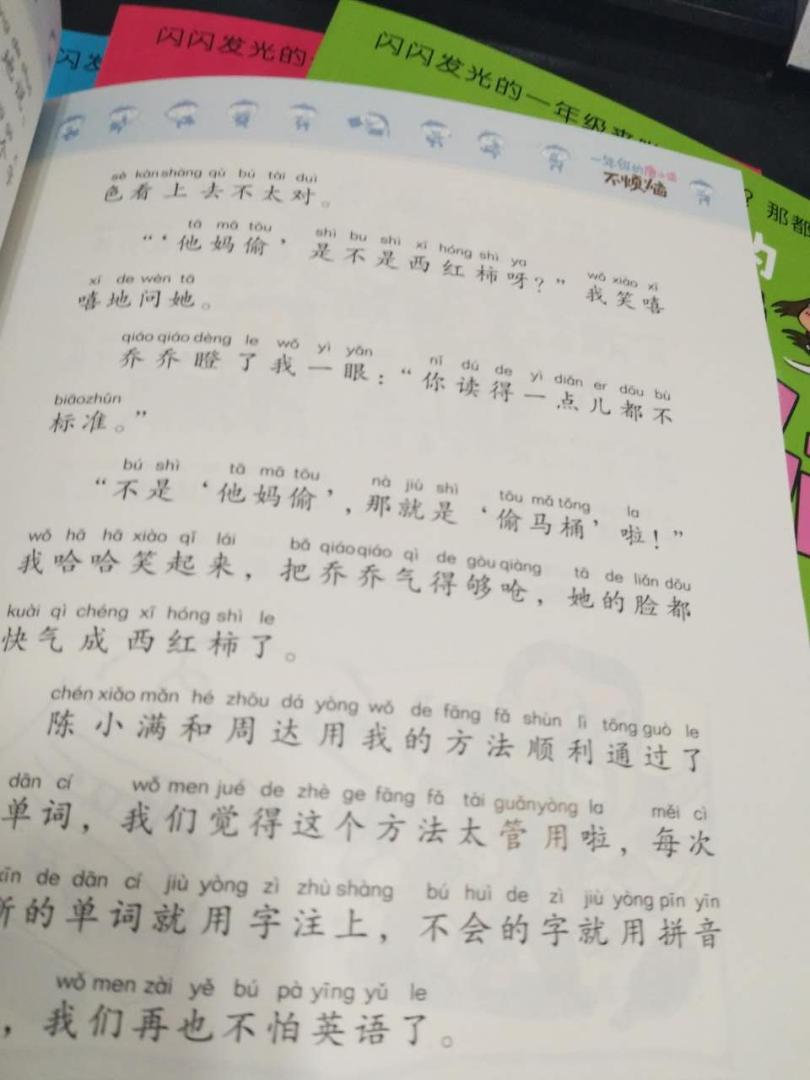 闪闪发
闪闪发光的一
闪闪发光的一年级来啦
？那都
的
一年级的
不烦恼
sè kàn shàng qù bú tài duì
色看上去不太对。
tā mā tōu shì bu shì xī hóng shì ya wǒ xiào xī
“‘他妈偷’是不是西红柿呀？”我笑嘻
xī de wèn tā
嘻地问她。
qiáo qiáo dèng le wǒ yì yǎn nǐ dú de yì diǎn er dōu bù
乔乔瞪了我一眼：“你读得一点儿都不
biāozhǔn
标准。”
bú shì tā mā tōu nà jiù shì tōu mǎ tǒng la
“不是‘他妈偷’，那就是‘偷马桶’啦！”
wǒ hā hā xiào qǐ lái bǎ qiáo qiáo qì de gòu qiàng tā de liǎn dōu
我哈哈笑起来，把乔乔气得够呛，她的脸都
kuài qì chéng xī hóng shì le
快气成西红柿了。
chén xiǎo mǎn hé zhōu dá yòng wǒ de fāng fǎ shùn lì tōng guò le
陈小满和周达用我的方法顺利通过了
dān cí wǒ men jué de zhè ge fāng fǎ tài guǎnyòng la měi cì
单词，我们觉得这个方法太管用啦，每次
xīn de dān cí jiù yòng zì zhù shàng bú huì de zì jiù yòng pīn yīn
新的单词就用字注上，不会的字就用拼音
wǒ men zài yě bú pà yīng yǔ le
，我们再也不怕英语了。